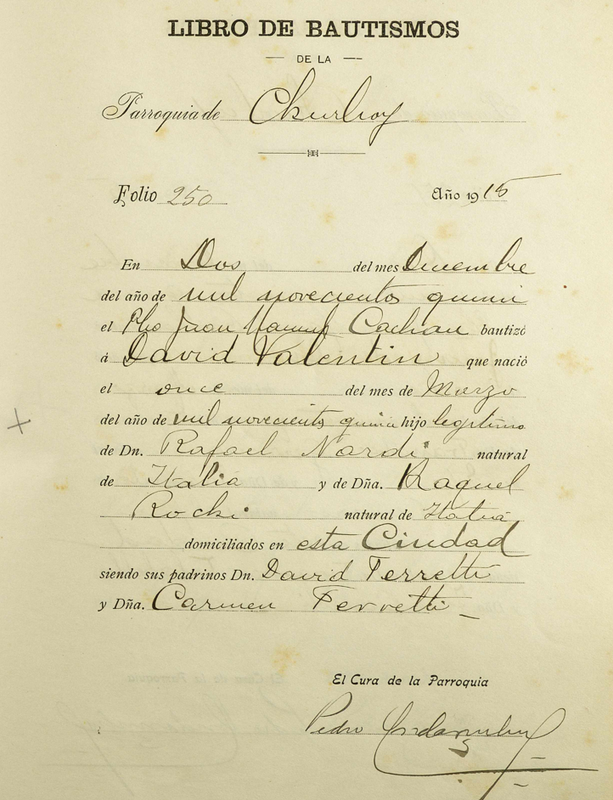 LIBRO DE BAUTISMOS
DE LA
Parroquia de
Folio 250 Año 1915
En Dos del mes Diciembre
del año de mil novecientos quince
el Pbo Juan Manuel bautizó
á David Valentin que nació
el once del mes de Marzo
del año de mil novecientos quince hijo legitimo
de Dn. Rafael Nardi natural
de Italia y de Dña. Raquel
Rocki natural de Italia
domiciliados en esta Ciudad
siendo sus padrinos Dn. David Ferretti
y Dña. Carmen Ferretti
El Cura de la Parroquia
Pedro